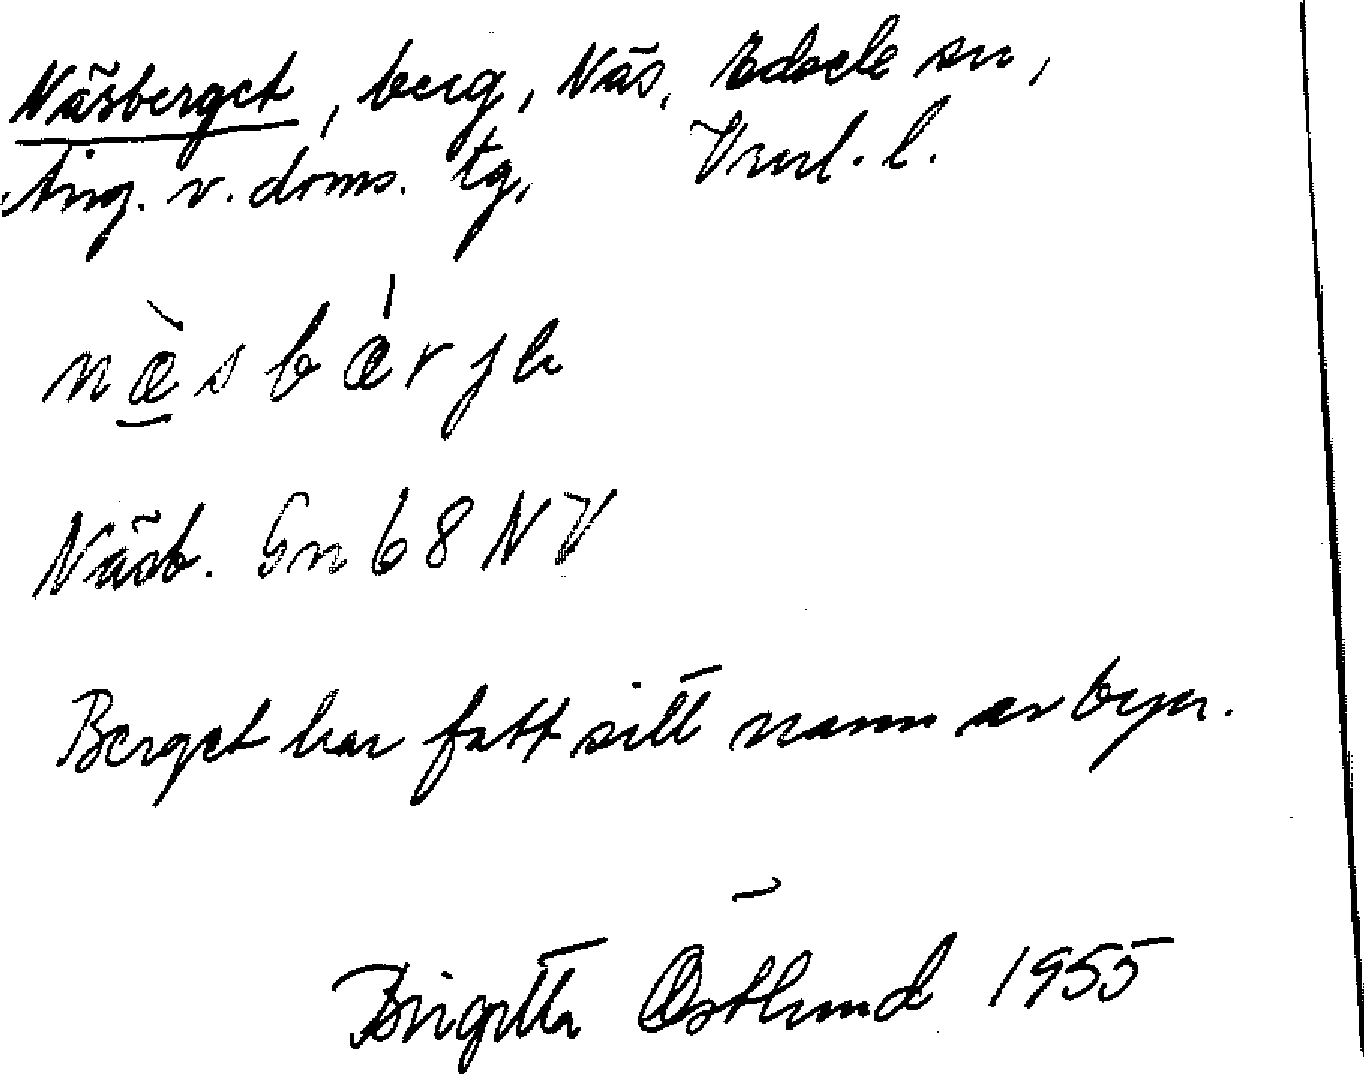 Näsberget, berg, Näs, Edsele sn,
Ång. v. doms. tg, Vnrl. l.
næ̀sbǽrjə
Näsb. Gn 68 NV
Berget har fått sitt namn av byn.
Birgitta Östlund 1955